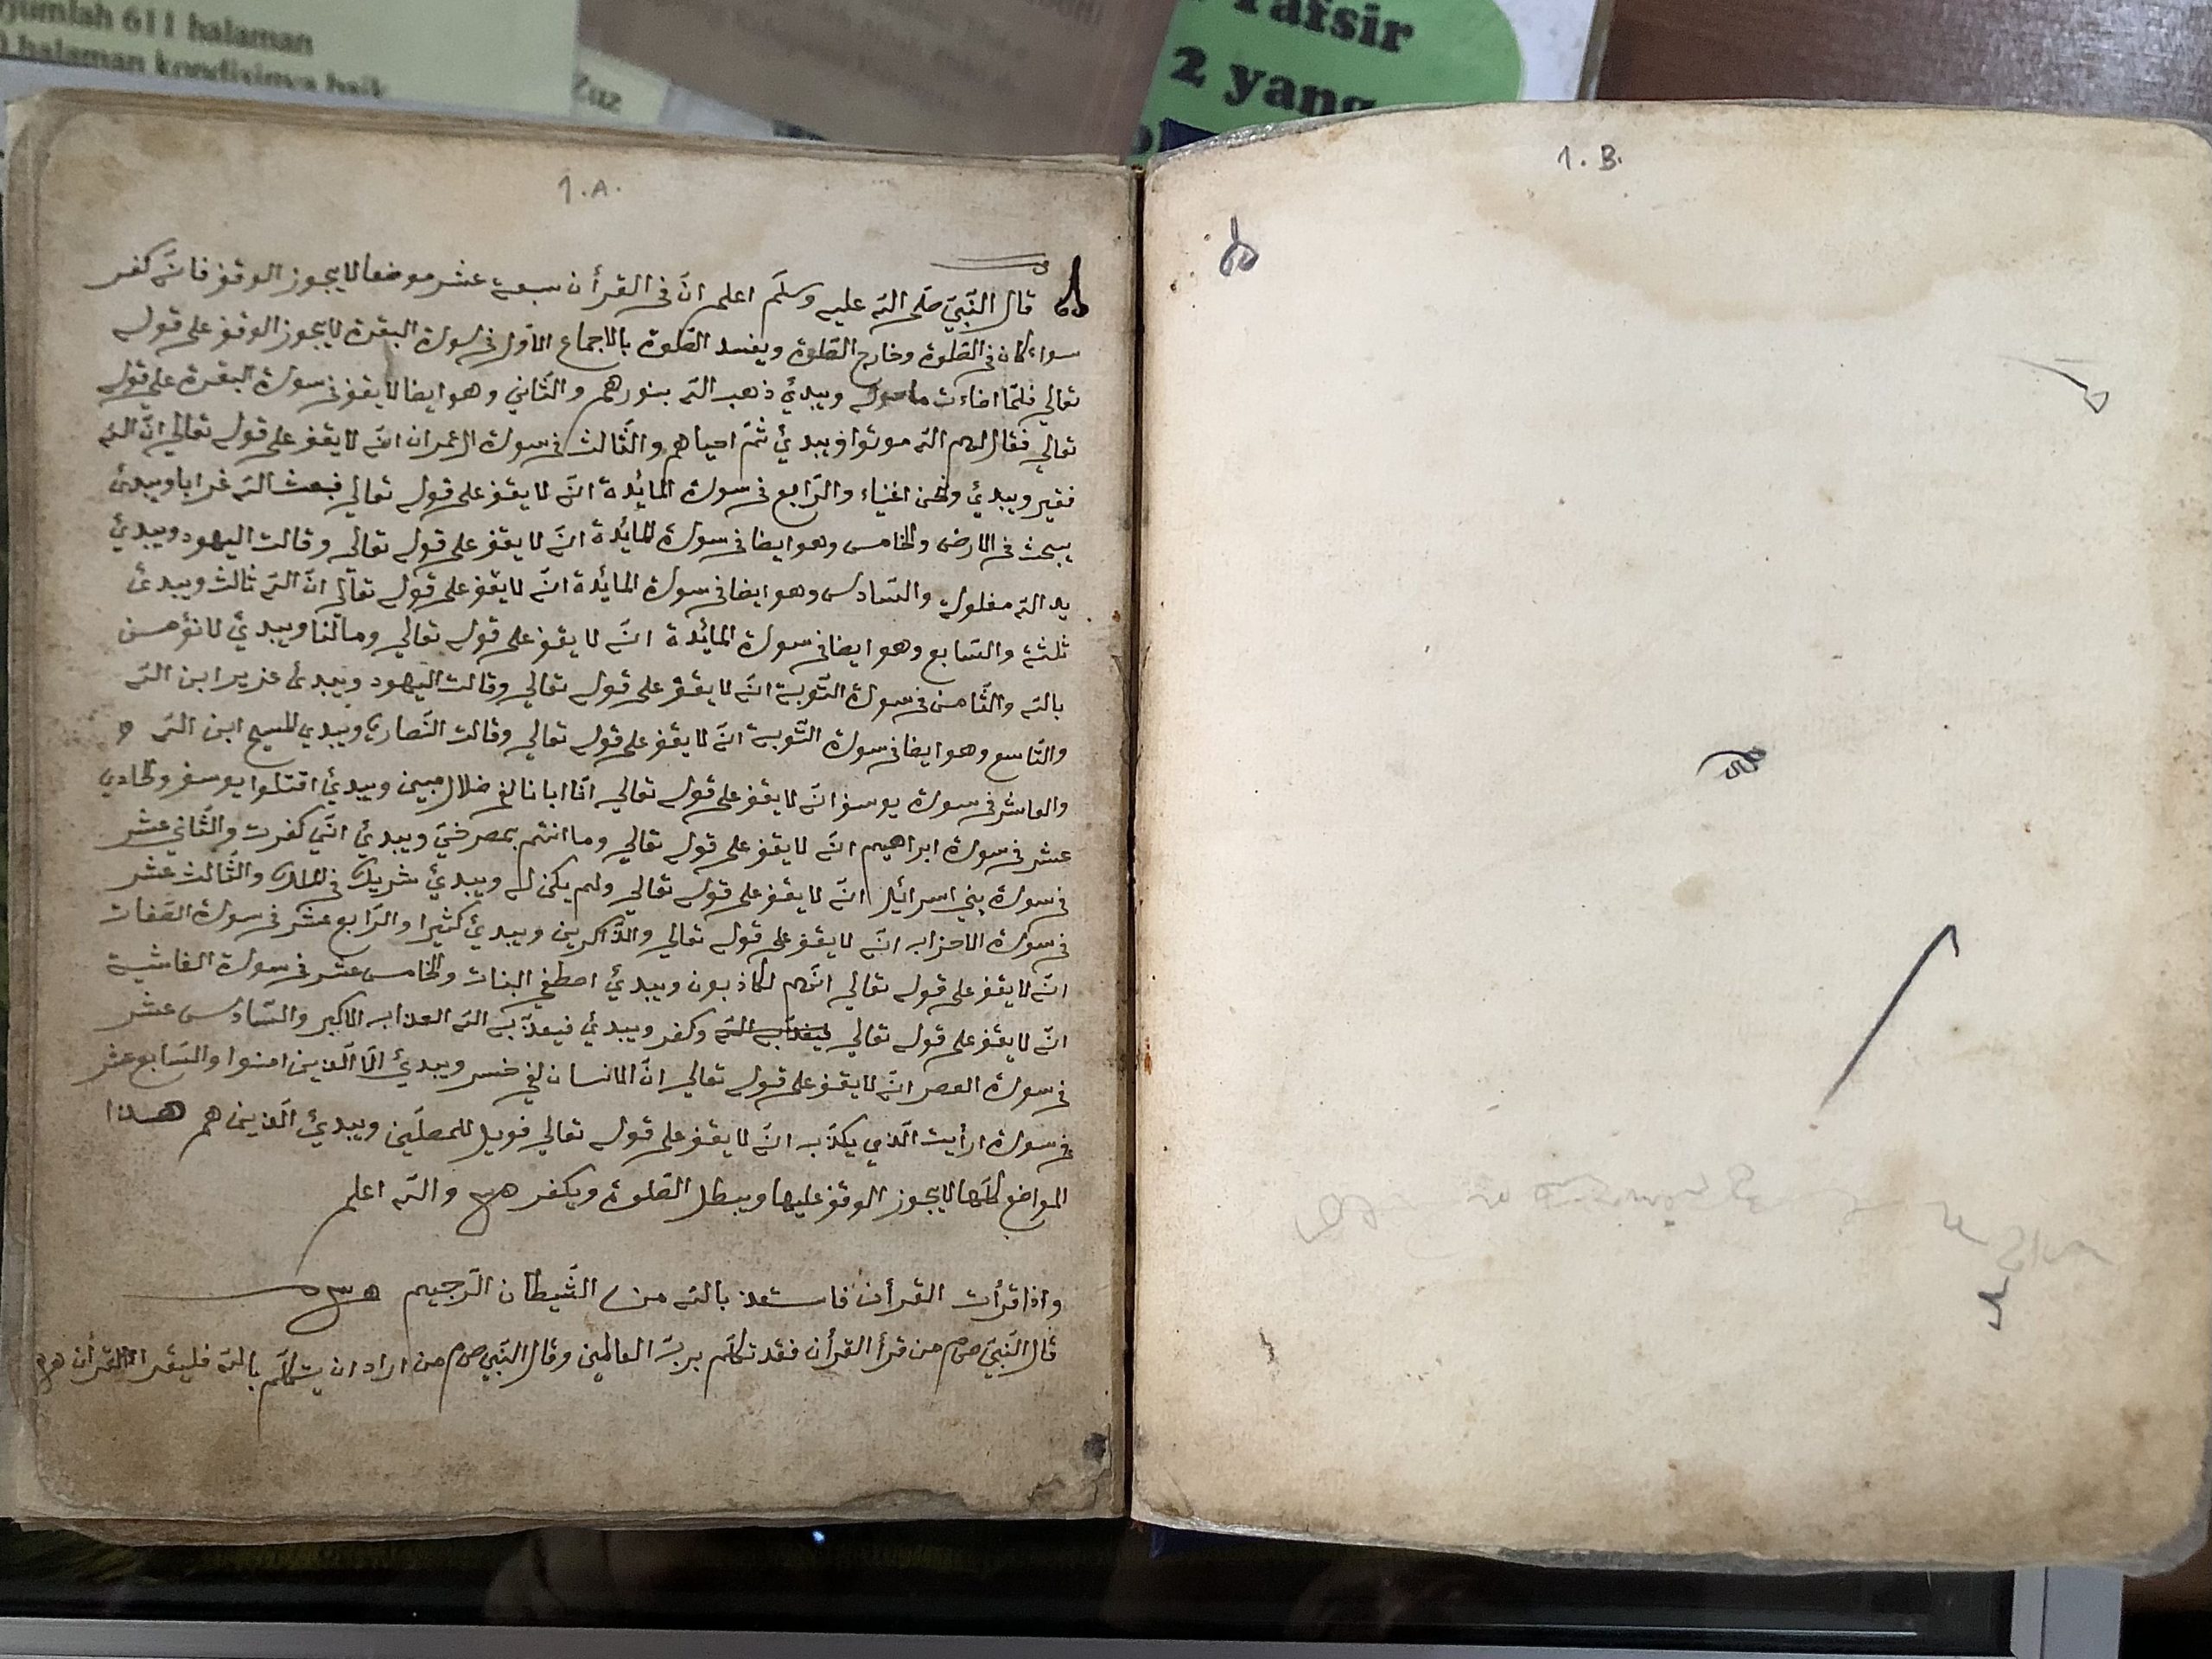 jumlah 611 halaman
halaman kondisinya baik
Zuz
Tafsir
2 yang
1.B.
1.A.
قال النّبيّ صلّى الله عليه وسلّم اعلم انّ فى القرأن سبعة عشر موضعا لا يجوز الوقف فانّه كفر
سواء كان فى الصّلوة وخارج الصّلوة ويفسد الصّلوة بالاجماع الاوّل فى سورة البقرة لا يجوز الوقف على قوله
تعالي فلمّا اضاءت ماحوله ويبدئ ذهب الله بنورهم والثّاني وهو ايضا لا يقف فى سورة البقرة على قوله
تعالي فقال لهم الله موتوا ويبدئ ثمّ احياهم والثّالث فى سورة ال عمران انّه لا يقف على قوله تعالي انّ الله
فقير ويبدئ ونحن اغنياء والرّابع فى سورة المائدة انّه لا يقف على قوله تعالي فبعث الله غرابا ويبدئ
يبحث فى الارض والخامس وهو ايضا فى سورة المائدة انّه لا يقف على قوله تعالي وقالت اليهود ويبدئ
يد الله مغلولة والسّادس وهو ايضا فى سورة المائدة انّه لا يقف على قوله تعالي انّ الله ثالث ويبدئ
ثلثة والسّابع وهو ايضا فى سورة المائدة انّه لا يقف على قوله تعالي ومالنا ويبدئ لا نؤمن
بالله والثّامن فى سورة التّوبة انّه لا يقف على قوله تعالي وقالت اليهود ويبدئ عزير ابن الله
والتّاسع وهو ايضا فى سورة التّوبة انّه لا يقف على قوله تعالي وقالت النّصاري ويبدي المسيح ابن الله و
والعاشر فى سورة يوسف انّه لا يقف على قوله تعالي انّ ابانا لفي ضلال مبين ويبدئ اقتلوا يوسف والحادي
عشر فى سورة ابراهيم انّه لا يقف على قوله تعالي وما انتم بمصرخيّ ويبدئ انّي كفرت والثّاني عشر
فى سورة بني اسرائيل انّه لا يقف على قوله تعالي ولم يكن له ويبدئ شريك فى الملك والثّالث عشر
فى سورة الاحزاب انّه لا يقف على قوله تعالي والذّاكرين ويبدئ كثيرا والرّابع عشر فى سورة الصّفات
انّه لا يقف على قوله تعالي انّهم لكاذبون ويبدئ اصطفي البنات والخامس عشر فى سورة الغاشية
انّه لا يقف على قوله تعالي وكفر ويبدئ فيعذّبه الله العذاب الاكبر والسّادس عشر
فى سورة العصر انّه لا يقف على قوله تعالي انّ الانسان لفي خسر ويبدئ الّا الّذين امنوا والسّابع عشر
فى سورة ارأيت الّذي يكذّب انّه لا يقف على قوله تعالي فويل للمصلّين ويبدئ الّذين هم هذا
المواضع كلّها لا يجوز الوقف عليها ويبطل الصّلوة ويكفر والله اعلم
واذا قرأت القرأن فاستعذ بالله من الشّيطان الرّجيم
قال النّبيّ صم من قرأ القرأن فقد تكلّم بربّ العالمين وقال النّبي صم من اراد ان يتكلّم بالله فليقرا القرأن